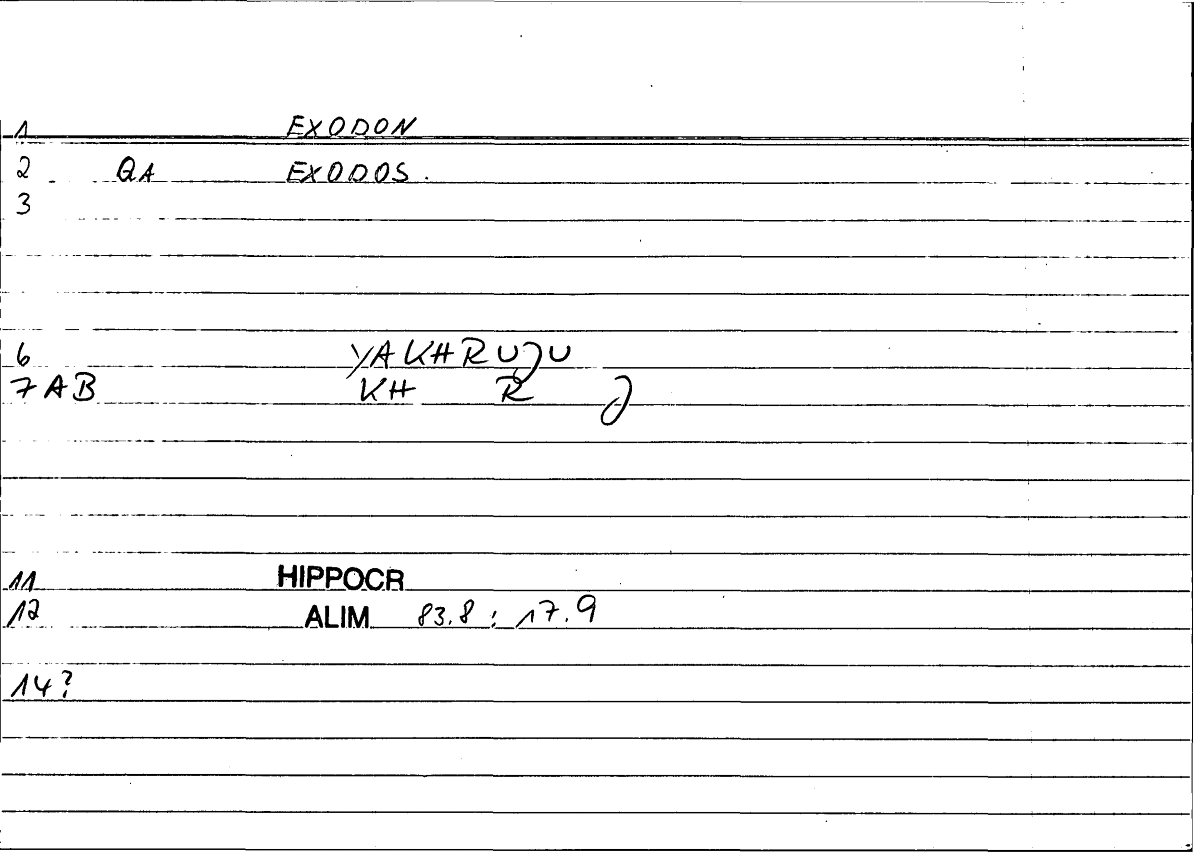 1 EXODON
2 QA EXODOS.
3
6 YAKHRUJU
7 AB KH R J
11 HIPPOCR
12 ALIM 83.8 : 17.9
14?